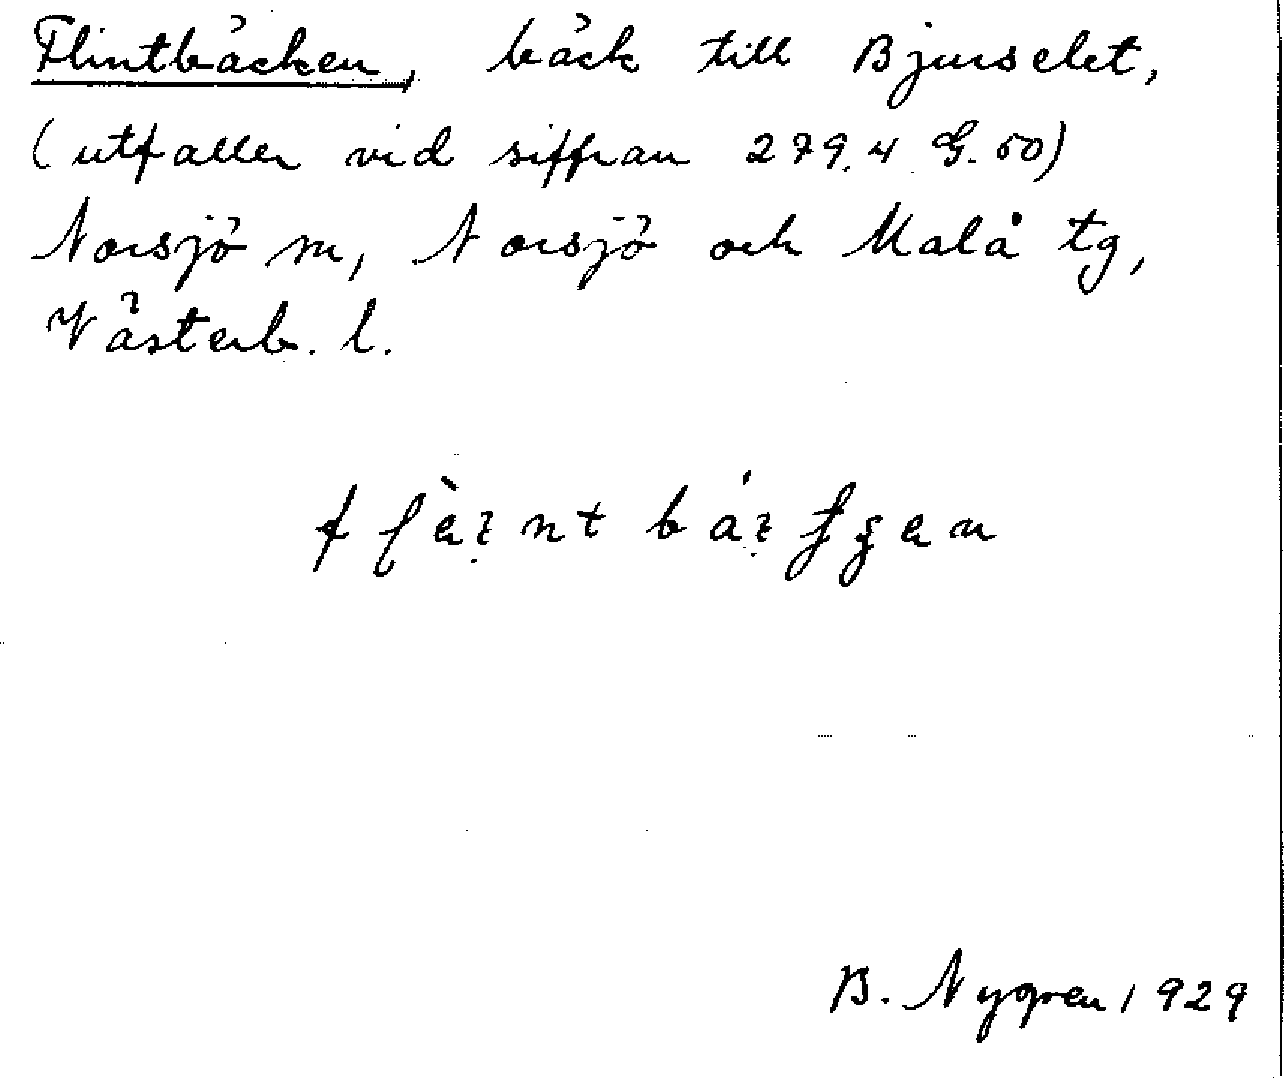 Flintbäcken, bäck till Bjurselet,
(utfaller vid siffran 279.4 G. 50)
Norsjö sn, Norsjö och Malå tg,
Västerb. l.
B. Nygren 1929